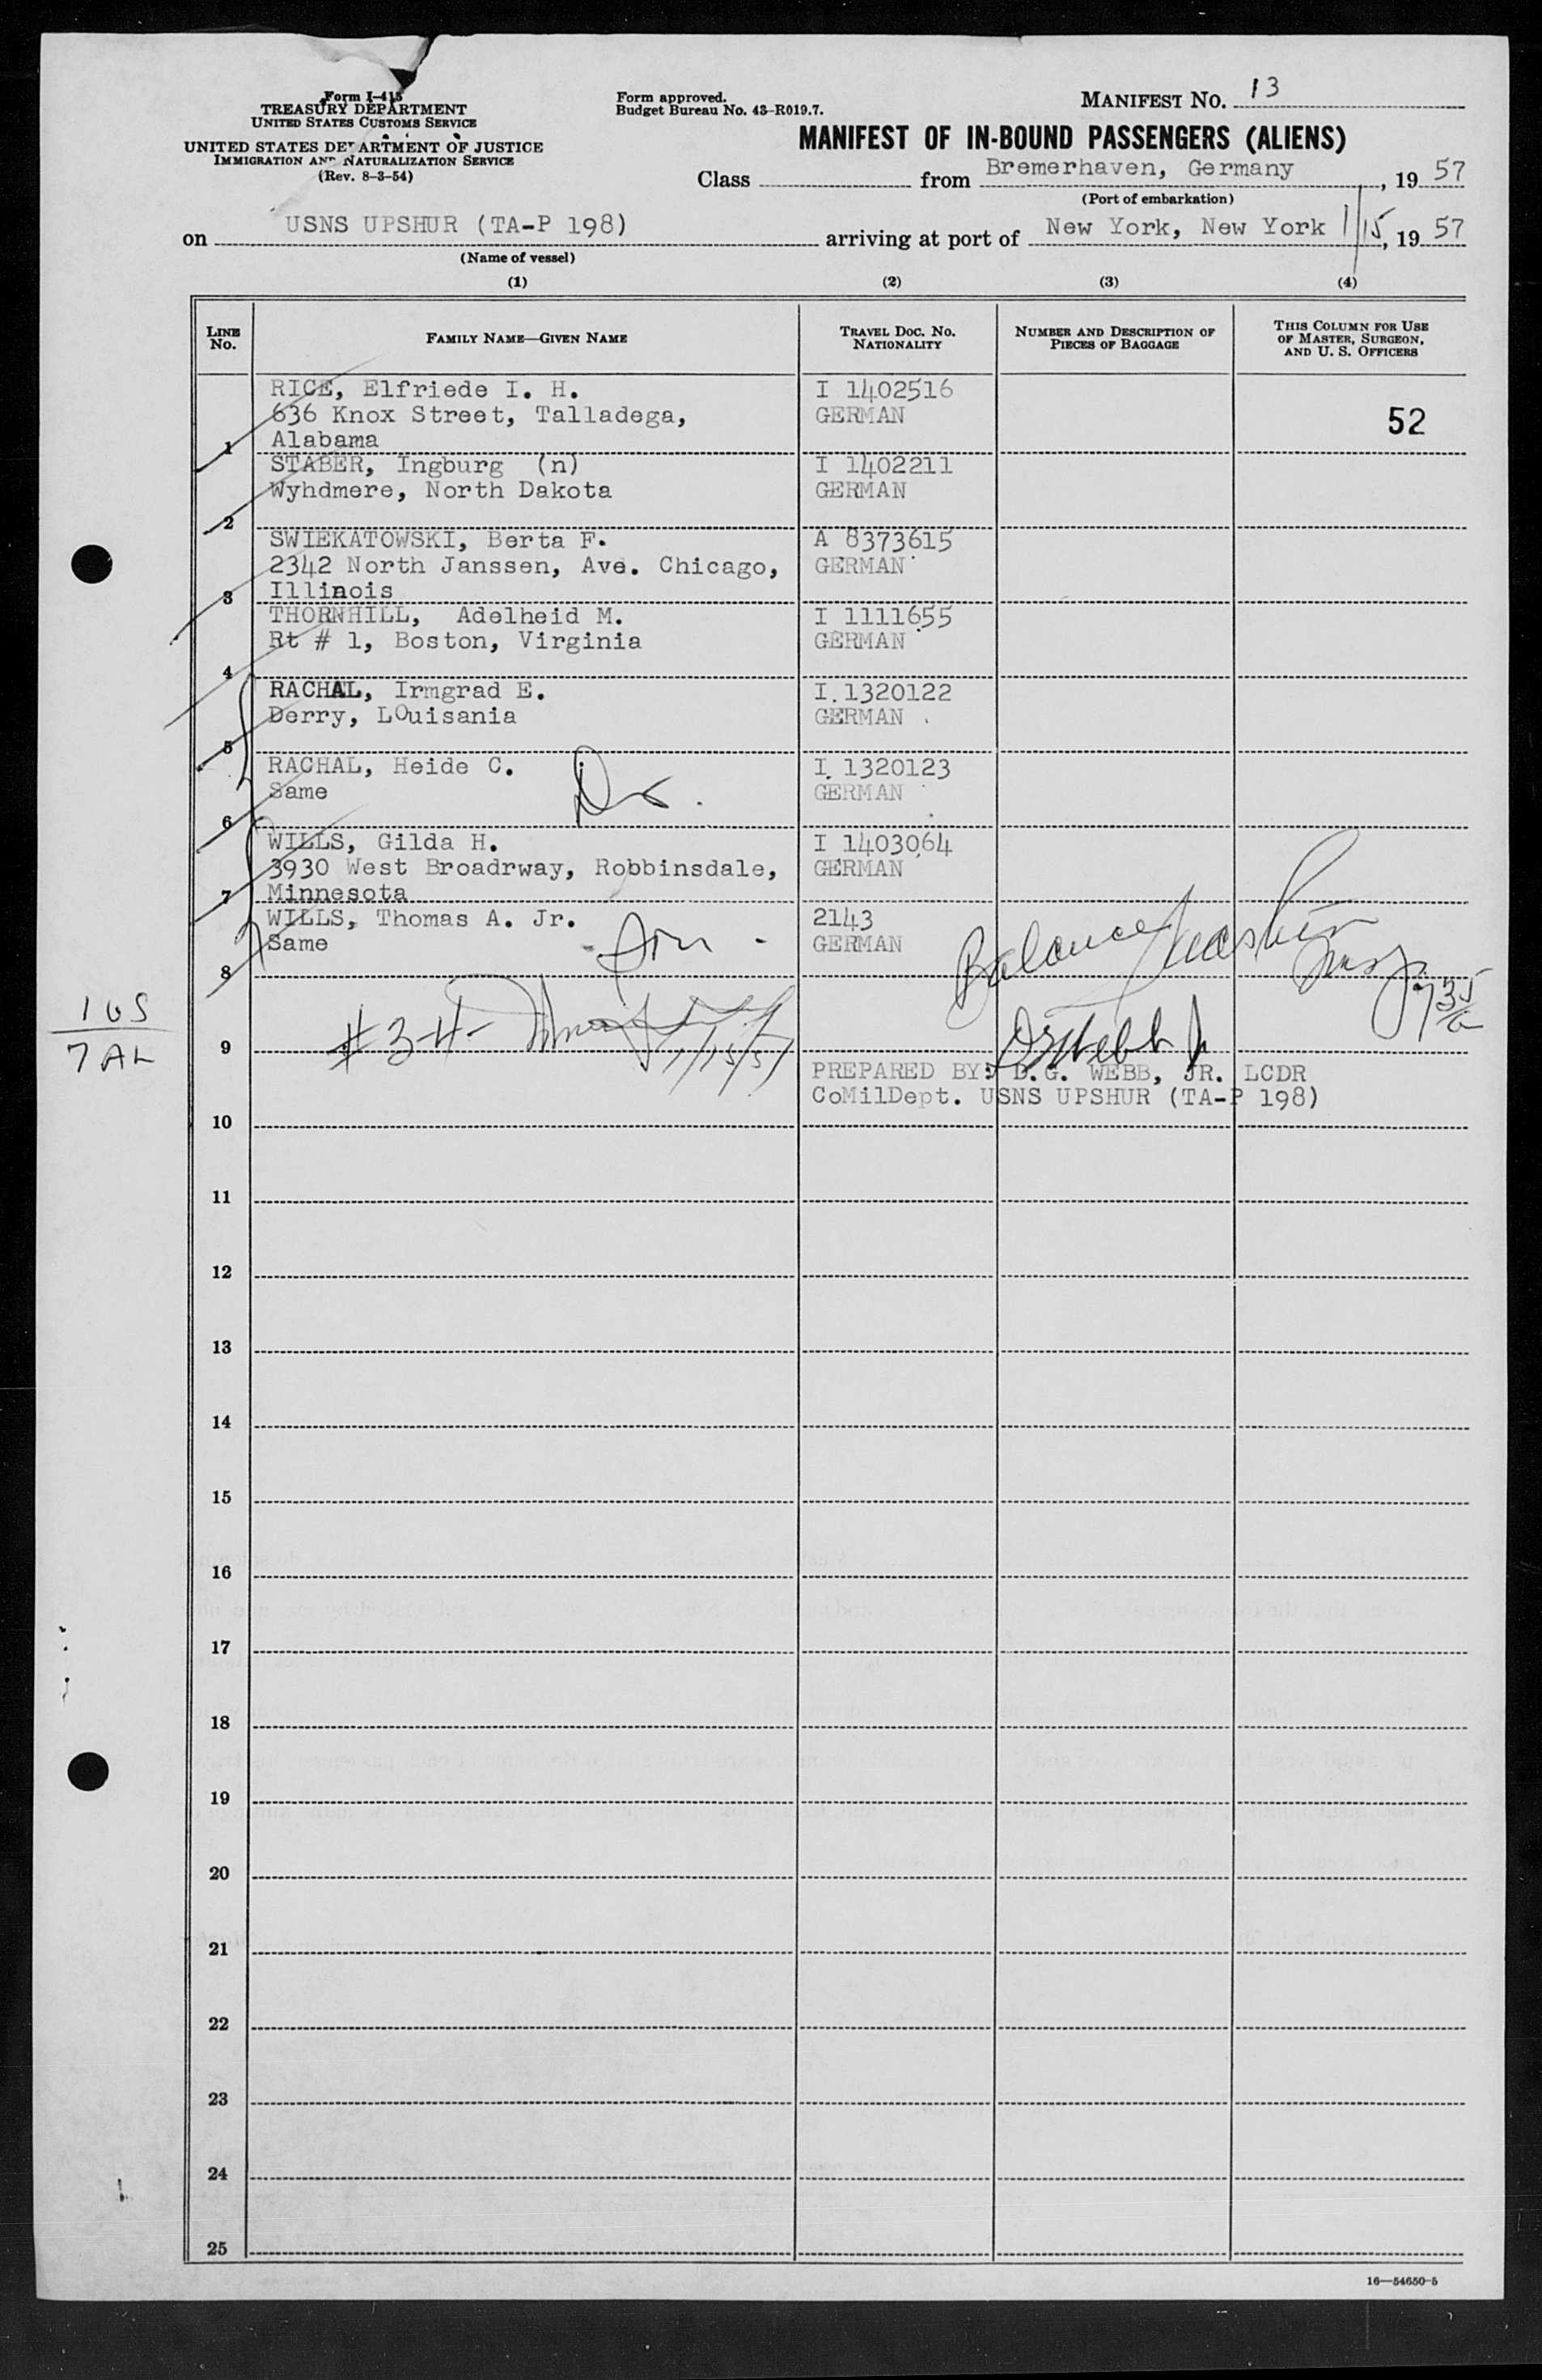 Form I-415
TREASURY DEPARTMENT
UNITED STATES CUSTOMS SERVICE
UNITED STATES DEPARTMENT OF JUSTICE
IMMIGRATION AND NATURALIZATION SERVICE
(Rev. 8-3-54)
Form approved.
Budget Bureau No. 43-R019.7.
MANIFEST NO. 13
MANIFEST OF IN-BOUND PASSENGERS (ALIENS)
Class from Bremerhaven, Germany, 19 57
(Port of embarkation)
on USNS UPSHUR (TA-P 198) arriving at port of New York, New York 1/15, 19 57
(Name of vessel)
(1) (2) (3) (4)
LINE NO. FAMILY NAME—GIVEN NAME TRAVEL DOC. NO. NATIONALITY NUMBER AND DESCRIPTION OF PIECES OF BAGGAGE THIS COLUMN FOR USE OF MASTER, SURGEON, AND U. S. OFFICERS
RICE, Elfriede I. H. I 1402516
636 Knox Street, Talladega, GERMAN 52
1 Alabama
STABER, Ingburg (n) I 1402211
Wyhdmere, North Dakota GERMAN
2
SWIEKATOWSKI, Berta F. A 8373615
2342 North Janssen, Ave. Chicago, GERMAN
3 Illinois
THORNHILL, Adelheid M. I 1111655
Rt # 1, Boston, Virginia GERMAN
4
RACHAL, Irmgrad E. I.1320122
Derry, LOuisania GERMAN
5
RACHAL, Heide C. I. 1320123
Same GERMAN
6
WILLS, Gilda H. I 1403064
3930 West Broadrway, Robbinsdale, GERMAN
7 Minnesota
WILLS, Thomas A. Jr. 2143
Same Son - GERMAN
8
Balance
1 US
7 AL
9 #34- 1/15/57
PREPARED BY: D.G. WEBB, JR. LCDR
CoMilDept. USNS UPSHUR (TA-P 198)
10
11
12
13
14
15
16
17
18
19
20
21
22
23
24
25
16—54650-5